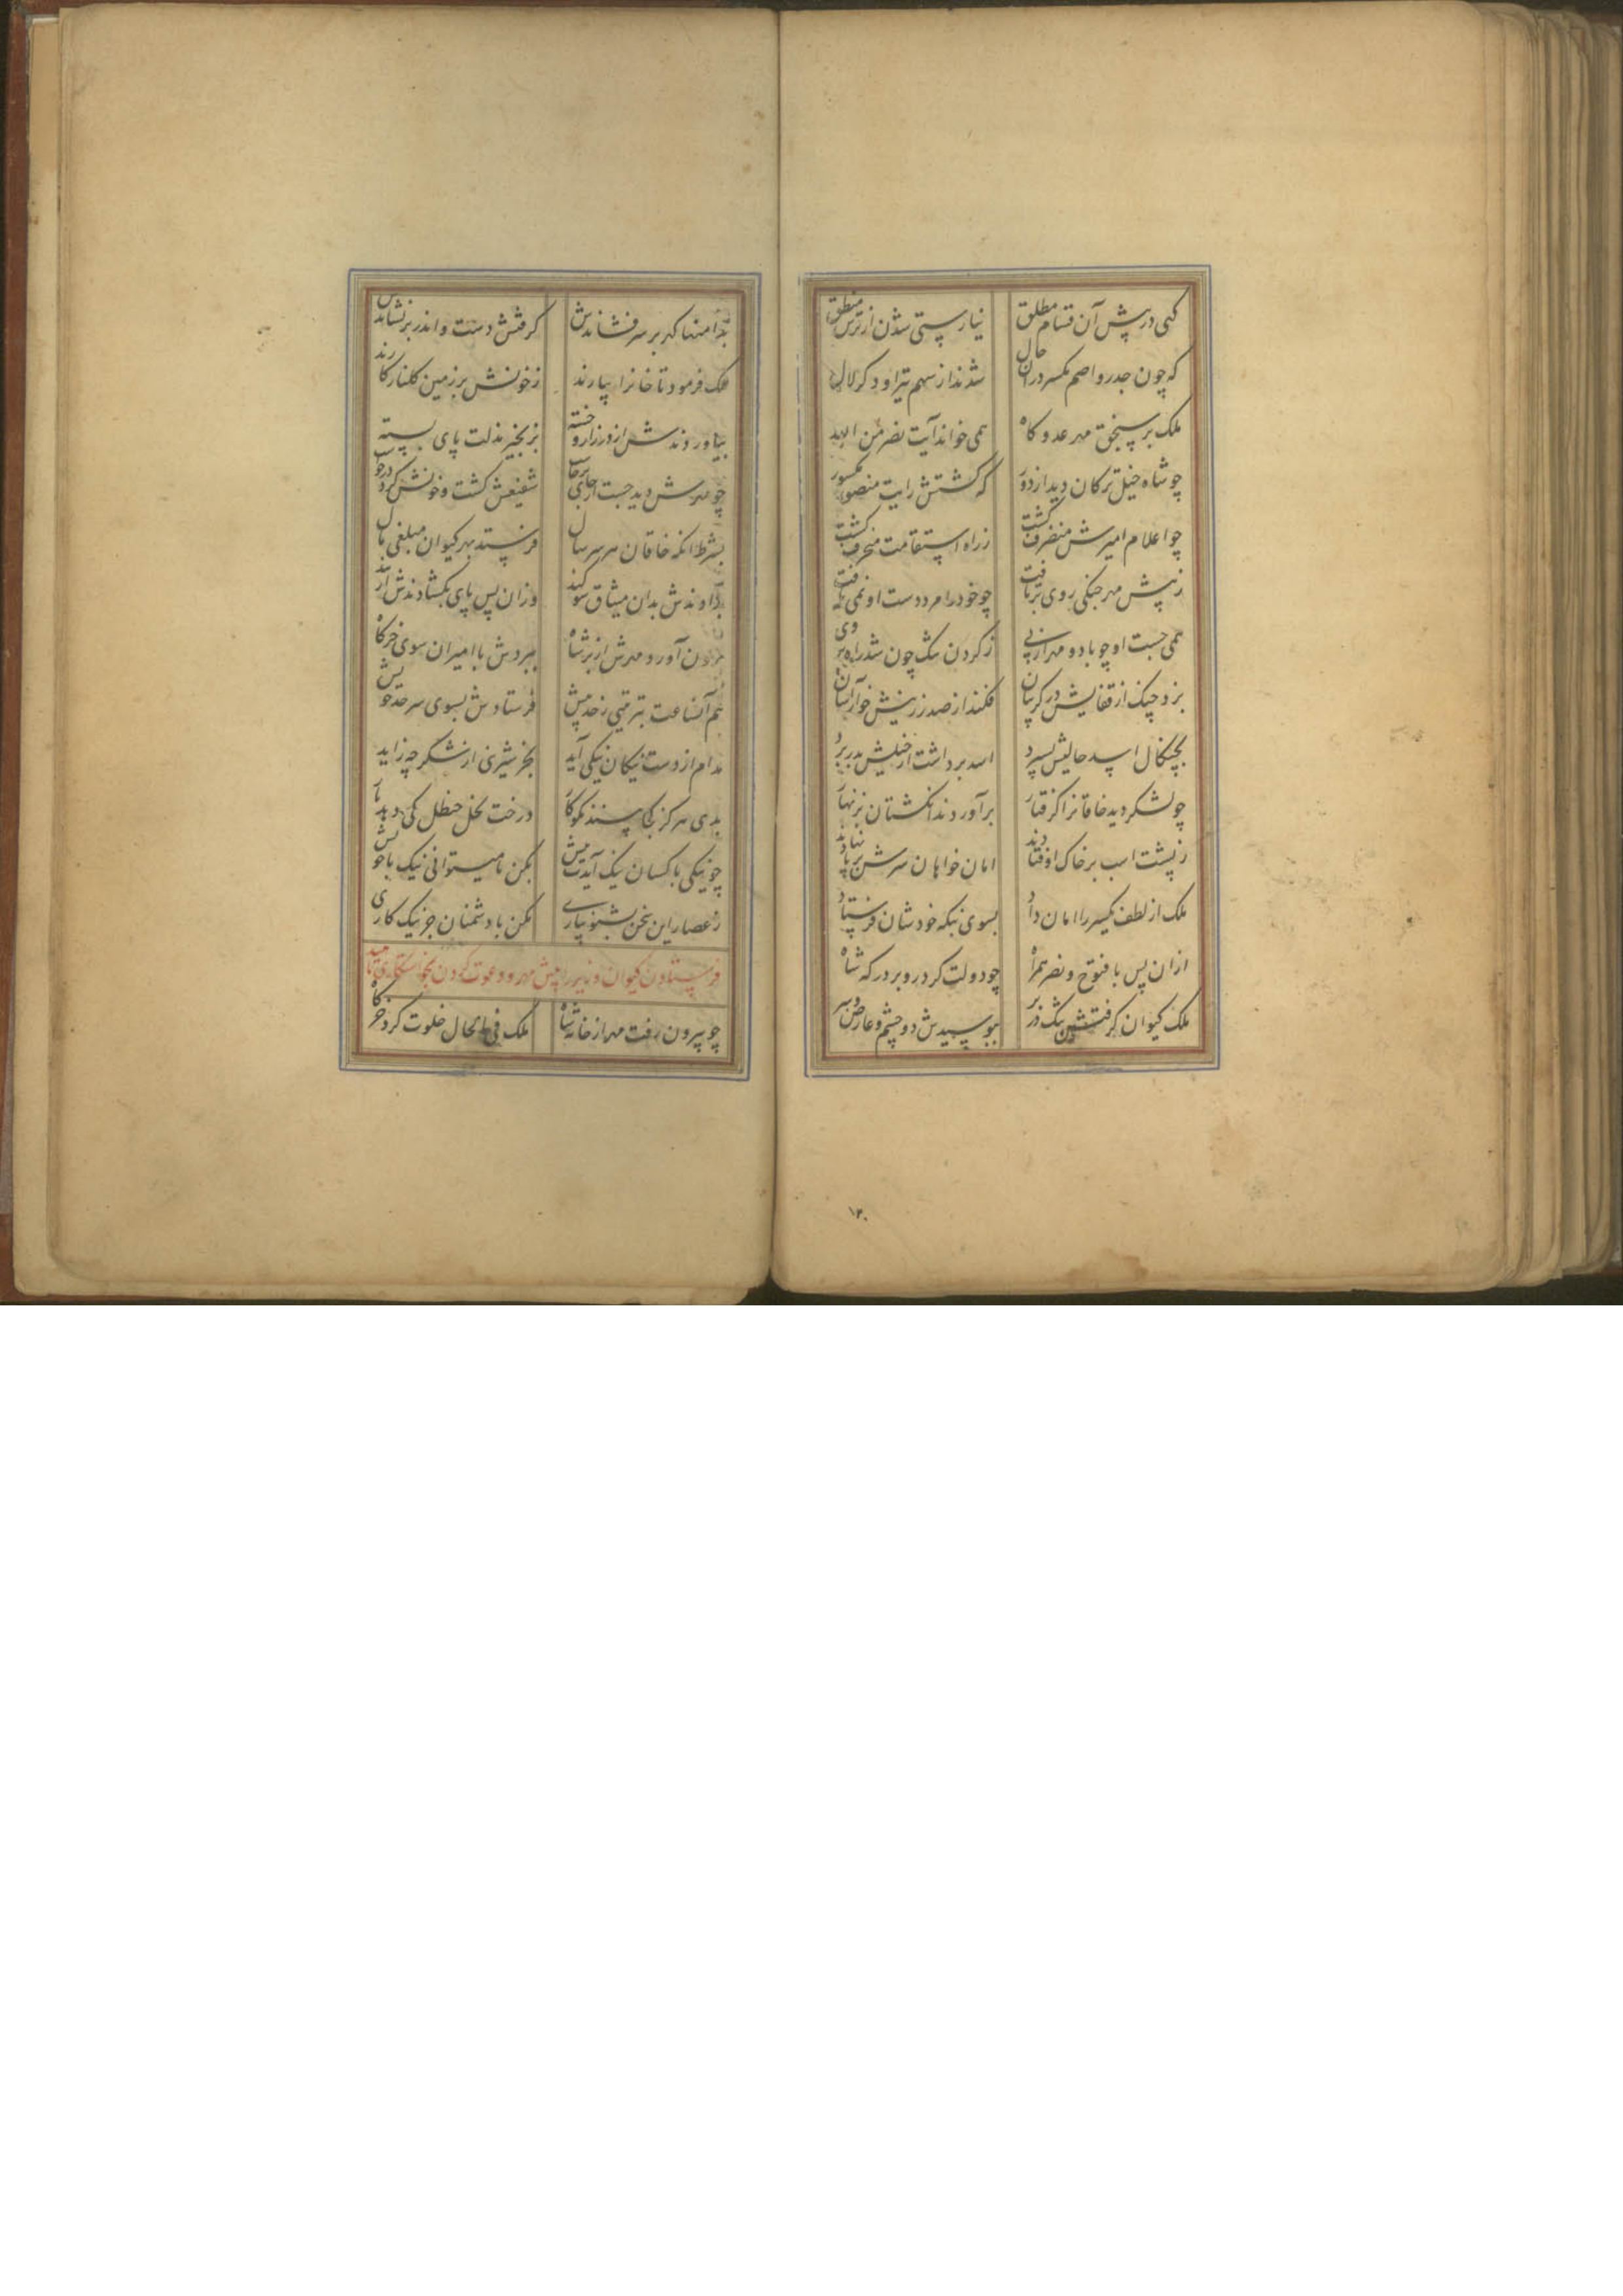 کسی در پیش آن قسام مطلق نیارستی شدن از ترس منطق
که چون جدر و اصم یکسر در آن حال شدند از سهم تیر او کر و لال
ملک بر سنجق مهر عدو کاه همی خواند آیت نصر من الله
چو شاه خیل ترکان دید از دور که گشتش رایت منصور مکسور
چو اعلام امیرش منصرف گشت ز راه استقامت منحرف گشت
ز پیش مهر جنگی روی برتافت چو خود را مرد دست او نمی یافت
همی جست او چو باد و مهر از پی ز گردن سگ چون شد راه بر وی
بزد چنگ از قفایش در گریبان فکند از صدر زینش خوار آسان
بچنگال اسد حالیش بسپرد اسد برداشت از خیلش بدر برد
چو لشکر دید خاقانرا گرفتار برآوردند انگشتان بزنهار
ز پشت اسب بر خاک اوفتادند امان خواهان سرش بر پا نهادند
ملک از لطف یکسر را امان داد بسوی بنگه خودشان فرستاد
از ان پس با فتوح و نصر همراه چو دولت کرد رو بر درگه شاه
ملک کیوان گرفتش تنگ در بر ببوسیدش دو چشم و عارض و سر
۱۳۰
بدامنها گهر بر سر فشاندش گرفتش دست و اندر بر نشاندش
ملک فرمود تا خانرا بیارند ز خونش بر زمین گلنار کارند
بیاوردندش از در زار و خسته بزنجیر مذلت پای بسته
چو مهرش دید جست از جای برجاست شفیعش گشت و خونش کرد درخواست
بشرط آنکه خاقان هر سر سال فرستد بهر کیوان مبلغی مال
بدادندش بدان میثاق سوگند وز ان پس پای بگشادندش از بند
برون آورد مهرش از بر شاه ببردش با امیران سوی خرگاه
هم آنساعت بترتیبی ز حد بیش فرستادش بسوی سرحد خویش
مدام از دست نیکان نیکی آید بجز شیرینی از شکر چه زاید
بدی هرگز کجا پسندد نکوکار درخت نخل حنظل کی دهد بار
چو نیکی با کسان نیک آیدت پیش بکن تا میتوانی نیک با خویش
ز عصار این سخن بشنو بیاری مکن با دشمنان جز نیک کاری
فرستادن کیوان دو زیر را پیش مهر و دعوت کردن بخواستگاری ناهید
چو بیرون رفت مهر از خانه شاه ملک فی الحال خلوت کرد خرگاه